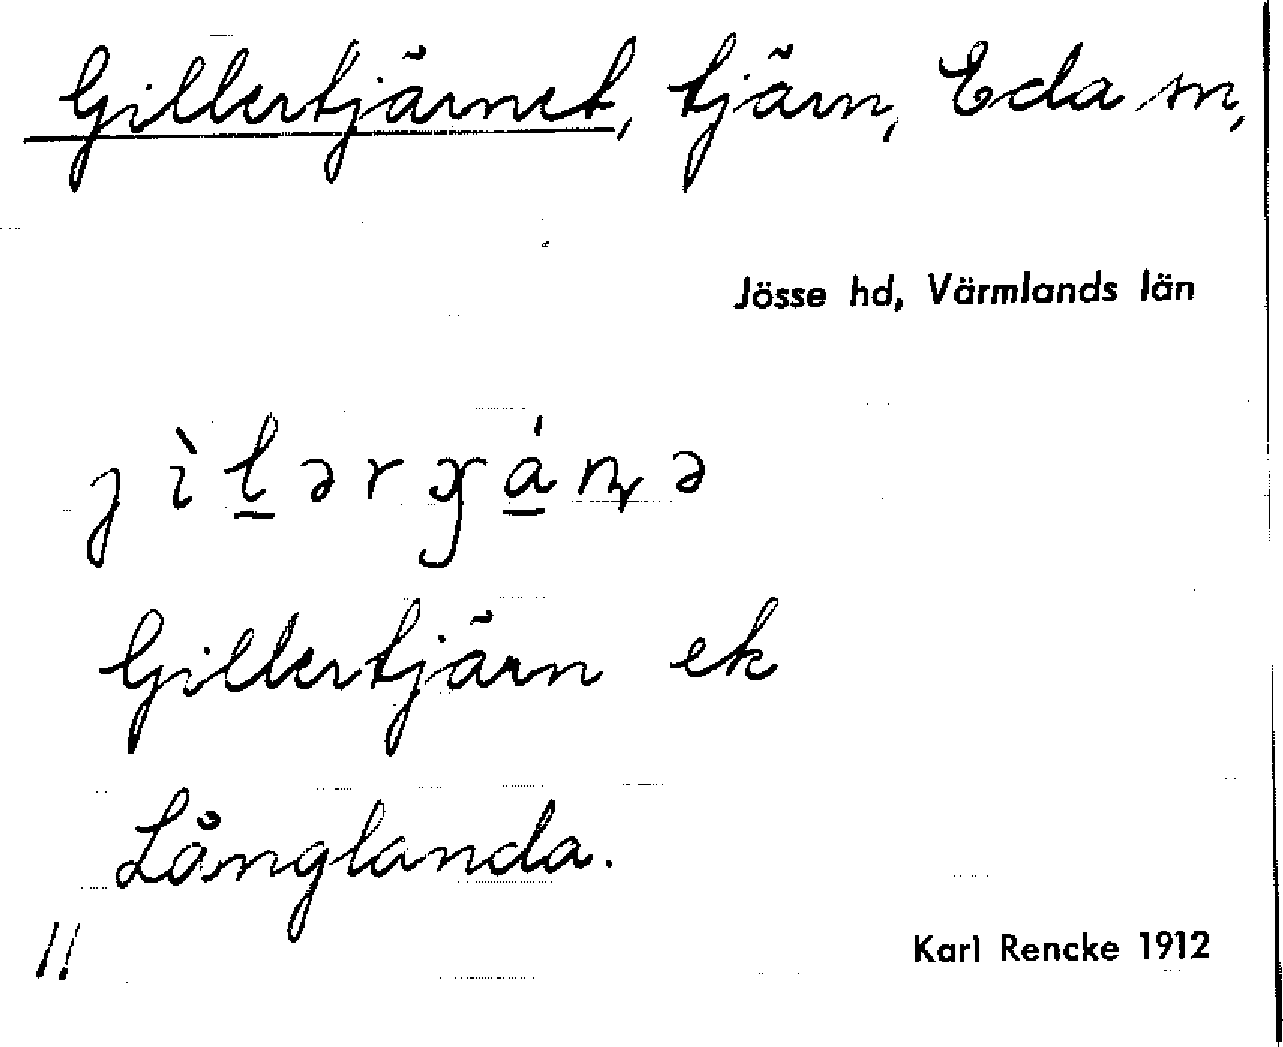 Gillertjärnet, tjärn, Eda sn,
Jösse hd, Värmlands län
ȷìḻərɣá̱ɳə
Gillertjärn ek
Långlanda.
11
Karl Rencke 1912